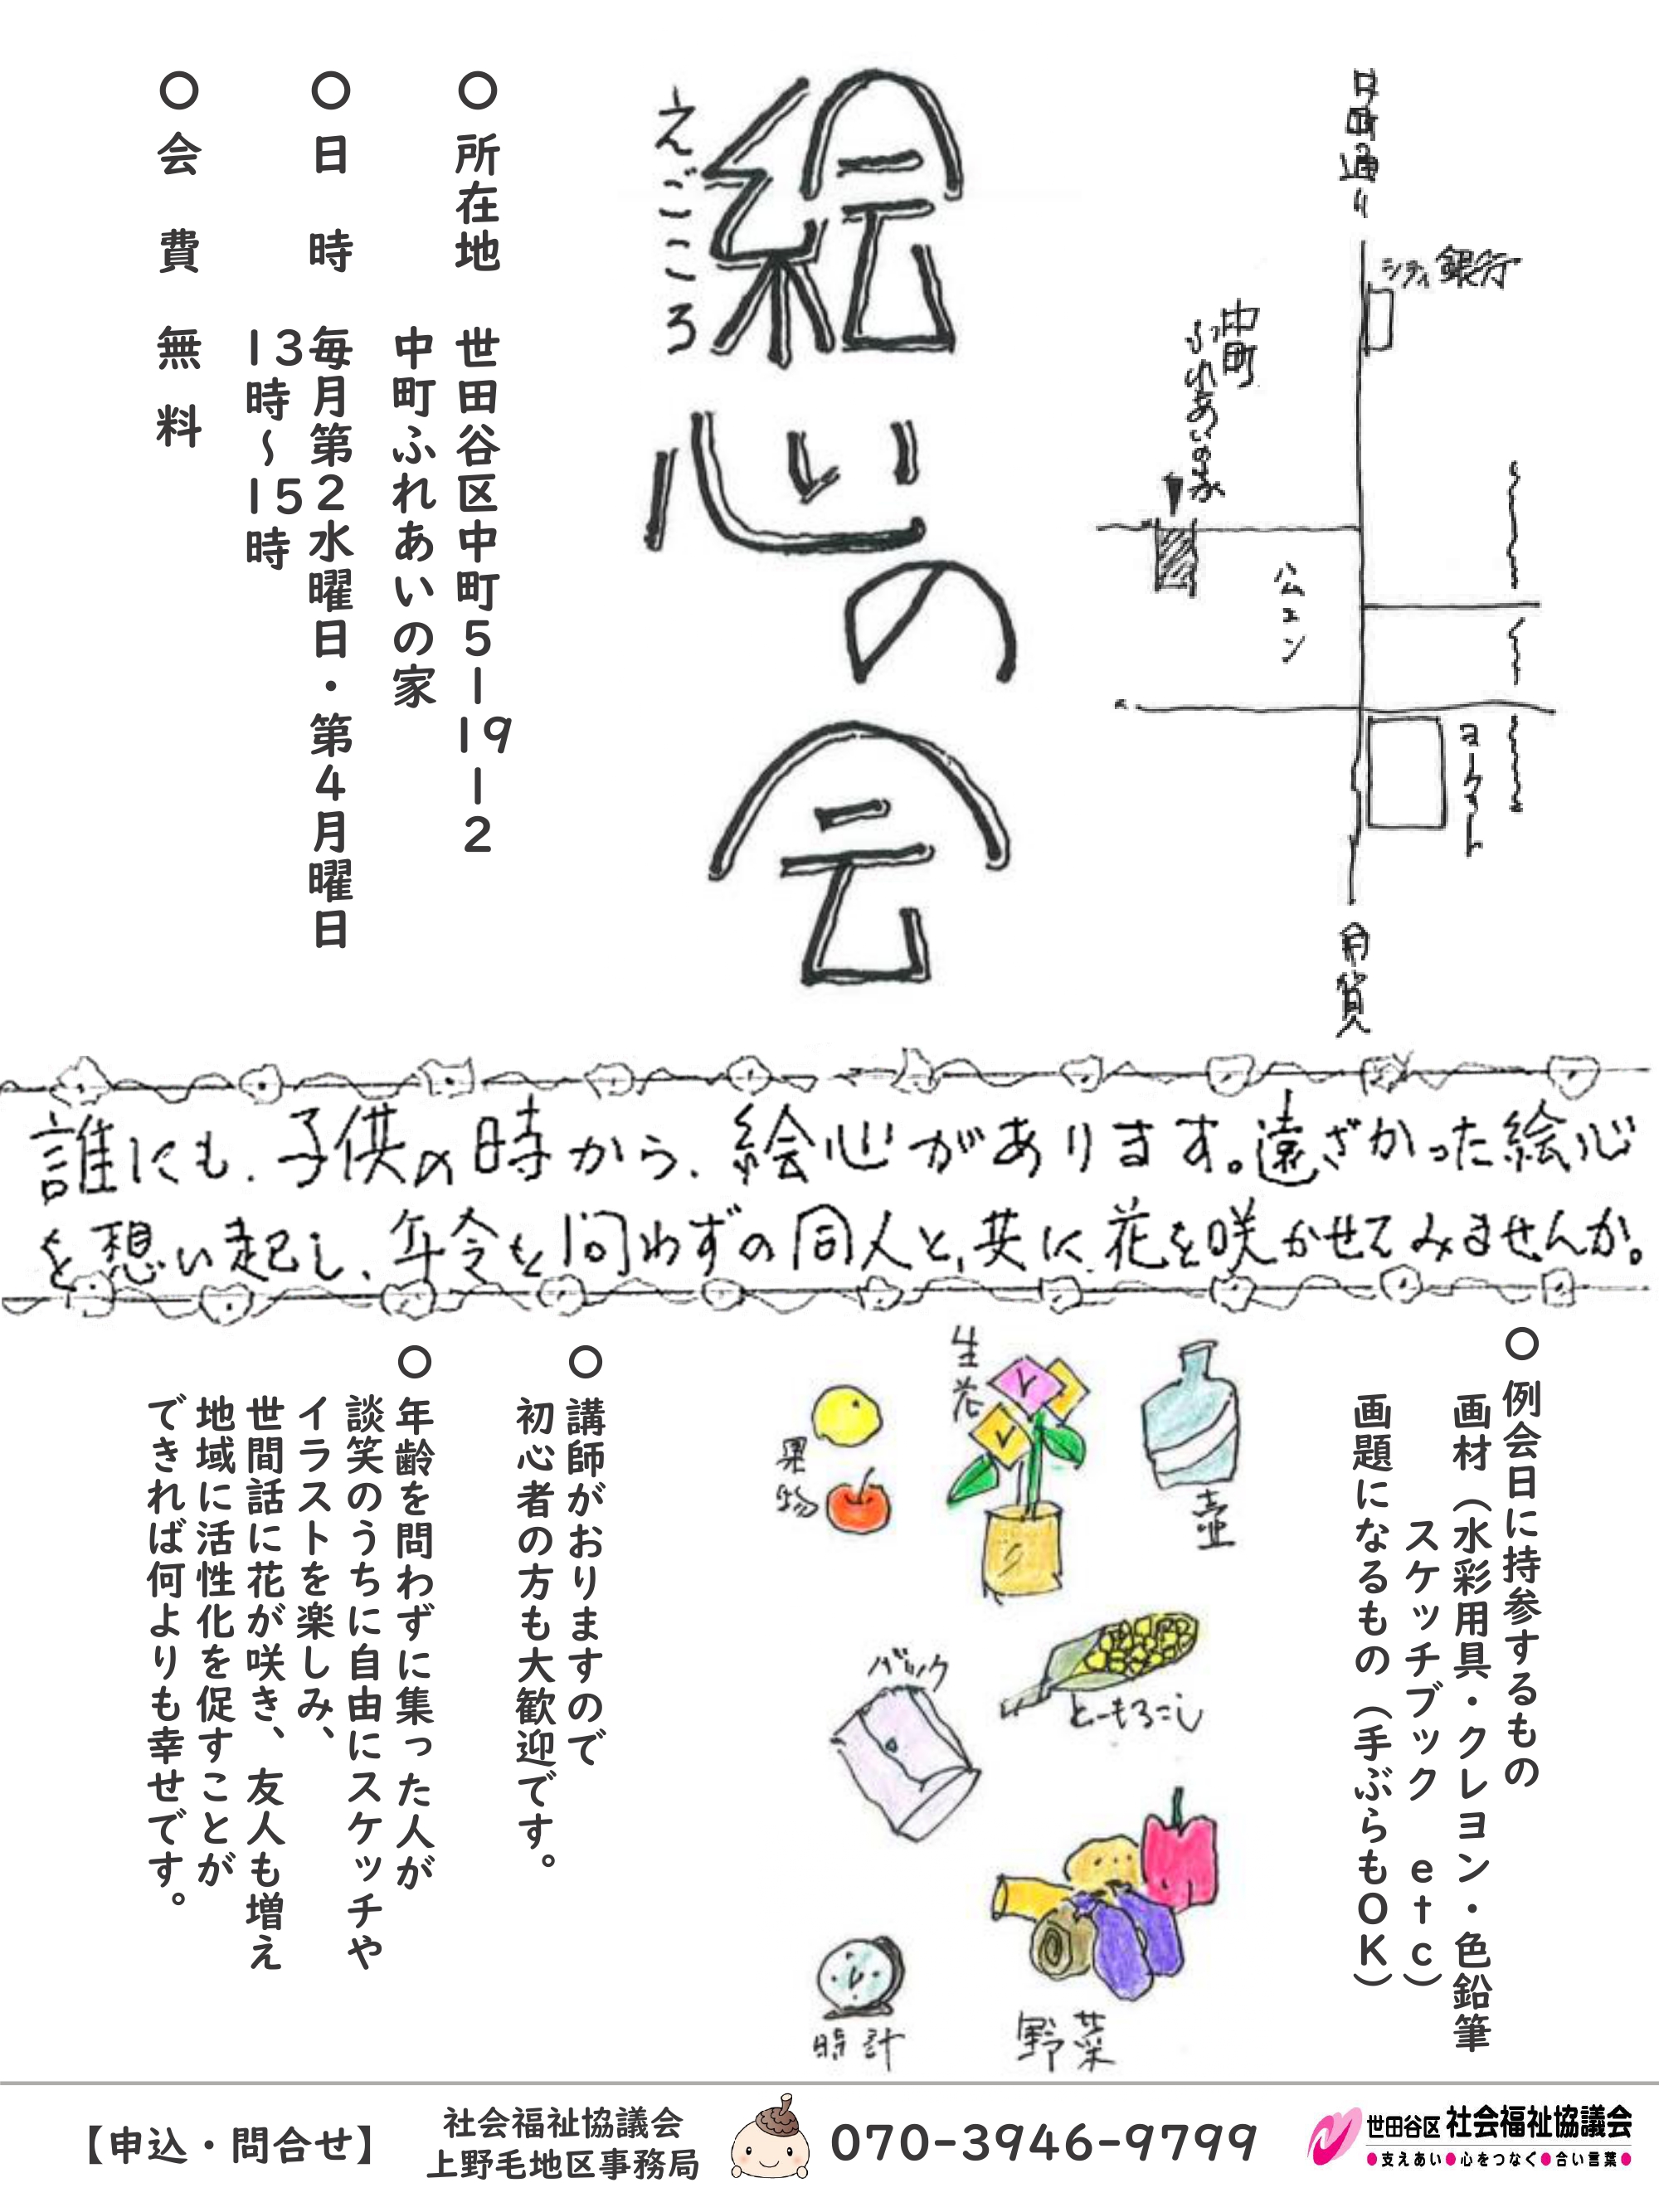 中町通り
シティ銀行
中町
ふれあいの家
公エン
ヨークマート
用賀
絵心の会
えごころ
○所在地 世田谷区中町5-19-2
中町ふれあいの家
○日 時 毎月第2水曜日・第4月曜日
13時~15時
○会 費 無 料
誰にも、子供の時から、絵心があります。遠ざかった絵心
を想い起し、年令を問わずの同人と、共に花を咲かせてみませんか。
○例会日に持参するもの
画材(水彩用具・クレヨン・色鉛筆
スケッチブック etc)
画題になるもの(手ぶらもOK)
壺
生花
果物
とーもろこし
バック
野菜
時計
○講師がおりますので
初心者の方も大歓迎です。
○年齢を問わずに集った人が
談笑のうちに自由にスケッチや
イラストを楽しみ、
世間話に花が咲き、友人も増え
地域に活性化を促すことが
できれば何よりも幸せです。
【申込・問合せ】
社会福祉協議会
上野毛地区事務局
070-3946-9799
世田谷区社会福祉協議会
●支えあい●心をつなぐ●合い言葉●